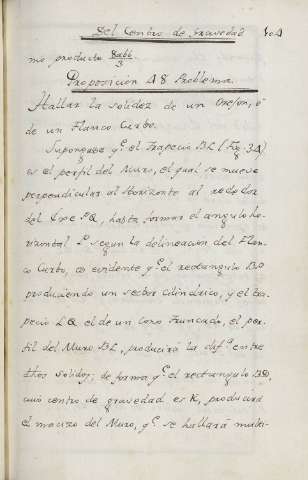 Del Centro de Gravedad 404
mo producto 8abb/3
Proposicion 48 Problema.
Hallar la solidez de un Orejon, ó
de un Flanco Curbo.
Supongase q.e el Trapecio BL (Fig 34)
es el perfil del Muro, el qual se mueve
perpendicular al Horizonte al rededor
del Exe PQ, hasta formar el angulo ho-
rizontal segun la delineacion del Flan-
co Curbo, es evidente q.e el rectangulo BO
produciendo un sector cilindrico, y el tra-
pecio LQ el de un Cono Truncado, el per-
fil del Muro BL, producirá la dif.a entre
dhos solidos; de forma q.e el rectangulo BD,
cuio centro de gravedad es K, producirá
el macizo del Muro, q.e se hallará multi-